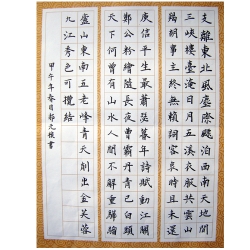 支離東北風塵際飄泊西南天地間
三峽樓臺淹日月五溪衣服共雲山
羯胡事主終無賴詞客哀時且未還
庾信平生最蕭瑟暮年詩賦動江關
鄭公粉繪隨長夜曹霸丹青已白頭
天下何曾有山水人間不解重驊騮
廬山東南五老峰青天削出金芙蓉
九江秀色可攬結
甲午年春月元書